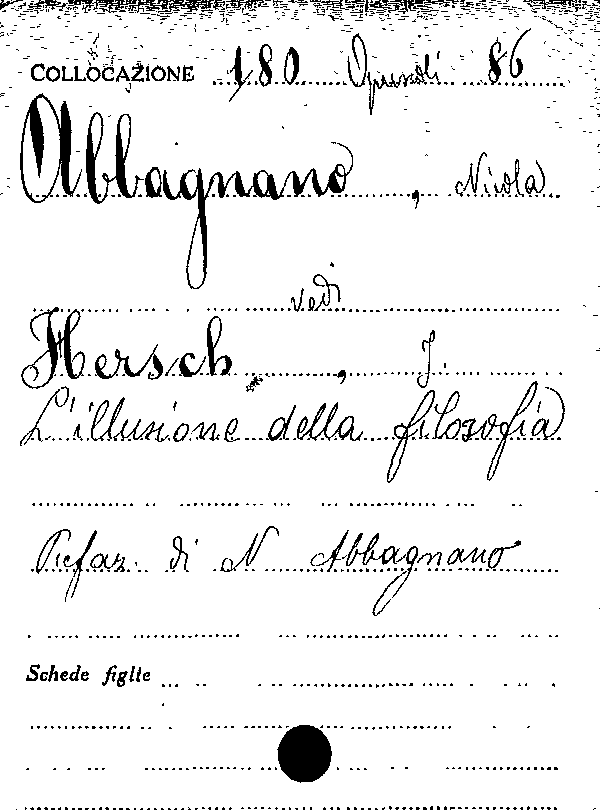 COLLOCAZIONE 180 Opuscoli 86
Abbagnano, Nicola
vedi
Hersch, J.
L'illusione della filosofia
Prefaz. di N Abbagnano
Schede figlie